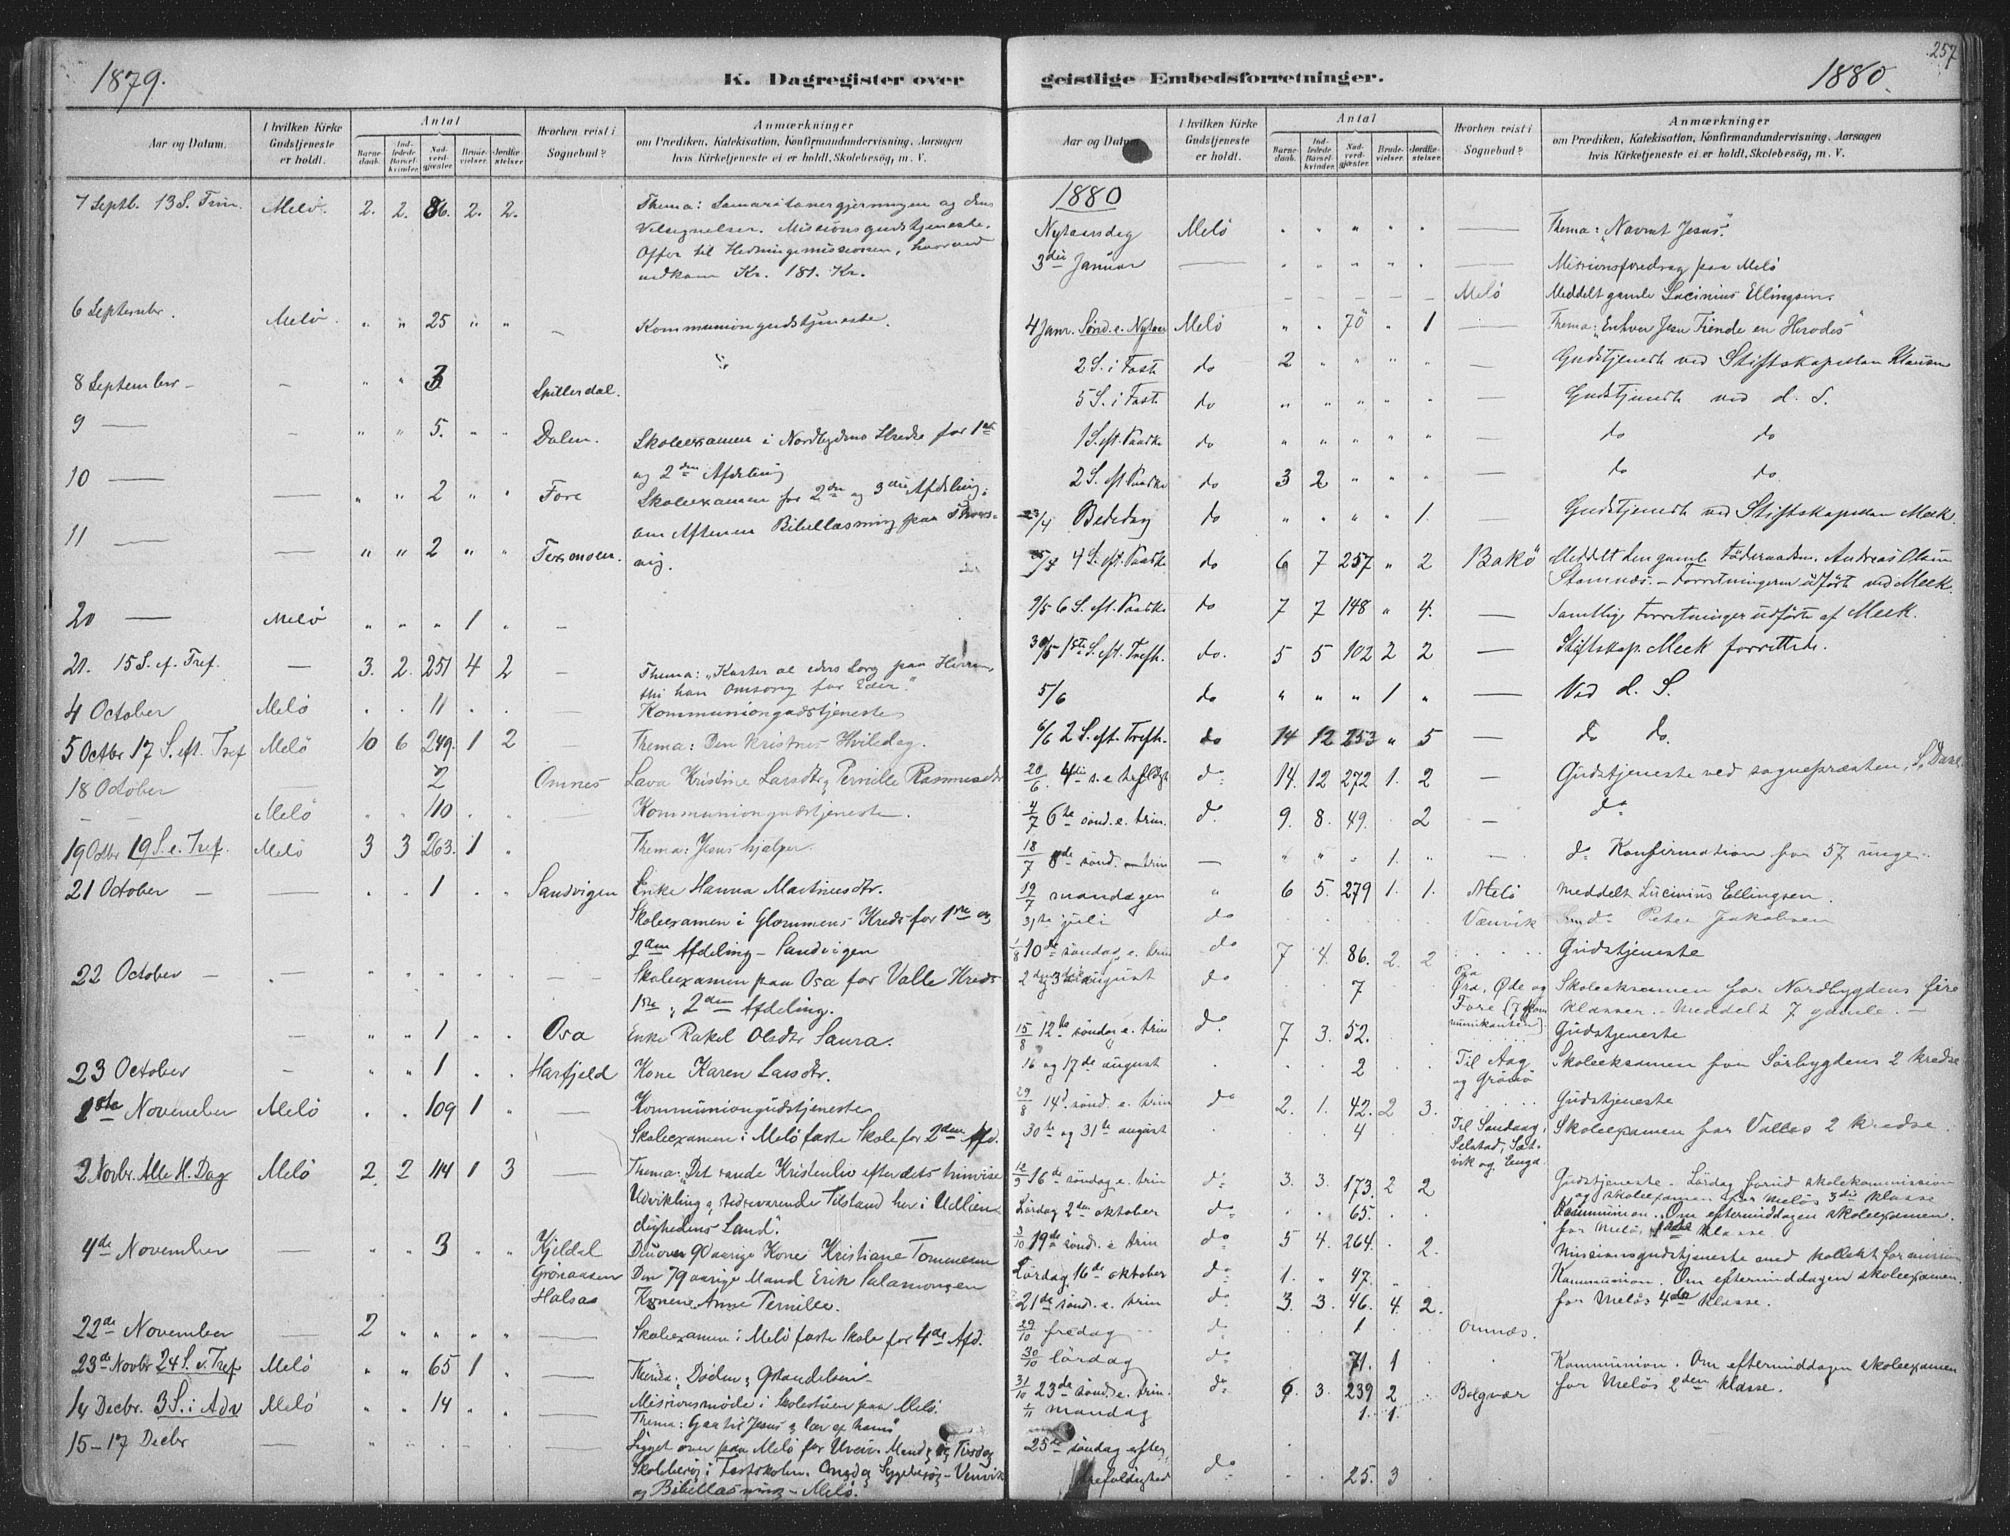 1879.
K. Dagregister over
Aar og Datum.
I hvilken Kirke Gudstjeneste er holdt.
Antal
Barnedaab.
Indledede Barselkvinder.
Nadverdgjæster.
Brudevielser.
Jordfæstelser.
Hvorhen reist i Sognebud?
Anmærkninger
om Prædiken, Katekisation, Konfirmandundervisning, Aarsagen
hvis Kirketjeneste ei er holdt, Skolebesög, m. V.
7 Septb. 13 S. Trin. Melö. 2. 2. 86. 2. 2. Thema: Samaritanergjerningen og dens
Velsignelser. Missionsgudstjeneste.
Offer til Hedningemissionen, hvorved
indkom Kr. 181. Kr.
6 September. Melö. " " 25 " " - Kommuniongudstjeneste.
8 September - - " " 3 Spillerdal.
9 — - " " 5. " " Dalen. Skoleexamen i Nordbygdens Kreds for 1ste
og 2den Afdeling
10 — — " " 2 " " Fore Skoleexamen for 2den og 3die Afdeling;
om Aftenen Bibellæsning paa
11 — — " " 2 " " vig.
20 — Melö " " " 1 " -
21. 15 S. ef. Tref. — 3. 2. 251 4 2 - Thema: "Kaster al eders Sorg paa Herren
thi han Omsorg for Eder."
4 October Melö . . 11 . . Kommuniongudstjeneste
5 Octbr 17 S. eft. Tref Melö 10 6 249. 1 2 — Thema: Den Kristnes Hviledag.
18 October — 2 Omnes Lava Kristine Larsdtr, Pernille Rasmusdtr
- - Melö . . 110 . . — Kommuniongudstjeneste.
19 Octbr 19 S. e. Tref. Melö 3 3 263. 1 " Thema: Jesus hjælper.
21 October - — . . 1 . . Sandvigen Enke Hanna Martinusdtr.
Skoleexamen i Glommens Kreds for 1ste og
2den Afdeling - Sandvigen
22 October - — " " " " " - Skoleexamen paa Osa for Valle Kreds
1ste, 2den Afdeling.
— " " 1 " . Osa Enke Rakel Olsdtr Saura.
23 October - " " 1 . . Harfjeld Kone Karen Larsdtr.
1ste November Melö . . 109 1 " — Kommuniongudstjeneste
Skoleexamen i Melö faste Skole for 2den Afd.
2 Novbr. Alle H. Dag Melö 2. 2 114 1 3 — Thema: "Det sande Kristenliv efter dets trinvise
Udvikling & tilsvarende Tilstand her i Udlændighedens Land".
4de November — " " 3 " " Kjeldal Den over 90 aarige Kone Kristiane Tommesen
Grönaasen Den 79 aarige Mand Erik Salamonsen
Halsaa Konen Anne Pernille.
22de November — 2 " " " " — Skoleexamen i Melö faste Skole for 4de Afd.
23de Novbr 24 S. e. Tref Melö " " 65 1 " — Thema: Döden,
14 Decbr. 3 S. i Adv Melö " " 14 " " — Missionsmöde i Skolestuen paa Melö.
Thema: Gaa til Jesus & lær af ham"
15-17 Decbr — Ligget over paa Melö for Uveir. Mandag, Tirsdag
Skolebesög i Fastskolen. Onsdag Sygebesög - Venvik
og Bibellæsning - Melö.
257
geistlige Embedsforretninger.
1880.
Aar og Datum.
I hvilken Kirke Gudstjeneste er holdt.
Antal
Barnedaab.
Indledede Barselkvinder.
Nadverdgjæster.
Brudevielser.
Jordfæstelser.
Hvorhen reist i Sognebud?
Anmærkninger
om Prædiken, Katekisation, Konfirmandundervisning, Aarsagen
hvis Kirketjeneste ei er holdt, Skolebesög, m. V.
1880
Nytaarsdag Melö " " " " " — Thema: "Navnet Jesus".
3die Januar — " " " " " — Missionsforedrag paa Melö
Melö Meddelt gamle Lucinius Ellingsen.
4 Janr. Sönd. e. Nytaar Melö " " 70 " 1 — Thema: "Enhver Jesu Fiende en Herodes"
2 S. i Faste do 2 " " " " — Gudstjeneste ved Stiftskapellan Klausen
5 S. i Faste do " " " " " — Gudstjeneste ved d. S.
1 S. eft. Paaske do " " " " " — do do
2 S. eft. Paaske do 3 2 " " " — do do.
23/4 Bededag do " " " " 1. — Gudstjeneste ved Stiftskapellan Meek.
25/4 4 S. eft. Paaske do 6 7 257 " 2 Bakö Meddelt den gamle Föderaadsm. Andreas Olsen
Stamnes. - Forretningerne udförte ved Meek.
9/5 6 S. eft. Paaske do 7 7 148 " 4. — Samtlige Forretninger udförte af Meek.
30/5 1ste S. eft. Trefh. do. 5 5 102 2 2 — Stiftskap. Meek forrettede.
5/6 do " " " 1 " — Ved d. S.
6/6 2 S. eft. Trefh. do 14 12 253 " 5 — do do.
20/6. 4de s. e. trefoldigh do 14. 12 272 1. 2 — Gudstjeneste ved sognepræsten, S. Dahl
4/7 6te sönd. e. trin. do 9. 8. 49. . 2 — do
18/7 8de sönd. e. trin — " " . 1. " — do Konfirmation for 57 unge.
19/7 mandagen " 6 5. 279 1. 1. Melö Meddelt Lucinius Ellingsen.
31te juli do Vænvik do Peter Jakobsen
1/8 10de söndag e. trin do 7 4. 86. 2. 2 Gudstjeneste
2den og 3die august do 7 Paa Öra, Öde og Skoleeksamen for Nordbygdens fire
Fore (7 kommunikanter) klasser. - Meddelt 7 gamle. -
15/8 12te söndag e. trin do 7 3. 52. Gudstjeneste
16 og 17de august 2 Til Aag Skoleeksamen for Sörbygdens 2 kredse
og Grönö
29/8 14de sönd. e. trin do 2. 1. 42. 2 3. Gudstjeneste
30te og 31te august 4 Til Sandaag, Skoleexamen for Valles 2 kredse.
Selstad, Sætvik og Enga
12/9 16de söndag e. trin do 3. 3. 173. 2 2 Gudstjeneste. Lördag forud skolekommission
og skoleexamen for Melös 3die klasse
Lördag 2den oktober do . . 65. Kommunion. Om eftermiddagen skoleexamen
for Melös 1ste klasse
3/10 19de sönd. e. trin do 5 4. 264. . 2. Missionsgudstjeneste med kollekt for mission
Lördag 16de oktober do 1. " 47. Kommunion. Om eftermiddagen skoleexamen
21de sönd. e. trin do 3. 3. 46. 4. 2. for Melös 4de klasse.
29/10 fredag do 1 Omnæs.
30/10 lördag do 71. 1 Kommunion. Om eftermiddagen skoleexamen
for Melös 2den klasse.
31/10 23de sönd. e. trin. do 6. 3. 239 2 Bolgvær
1/11 mandag 1. 1.
25de söndag efter
trefoldighed do . . 25. 3